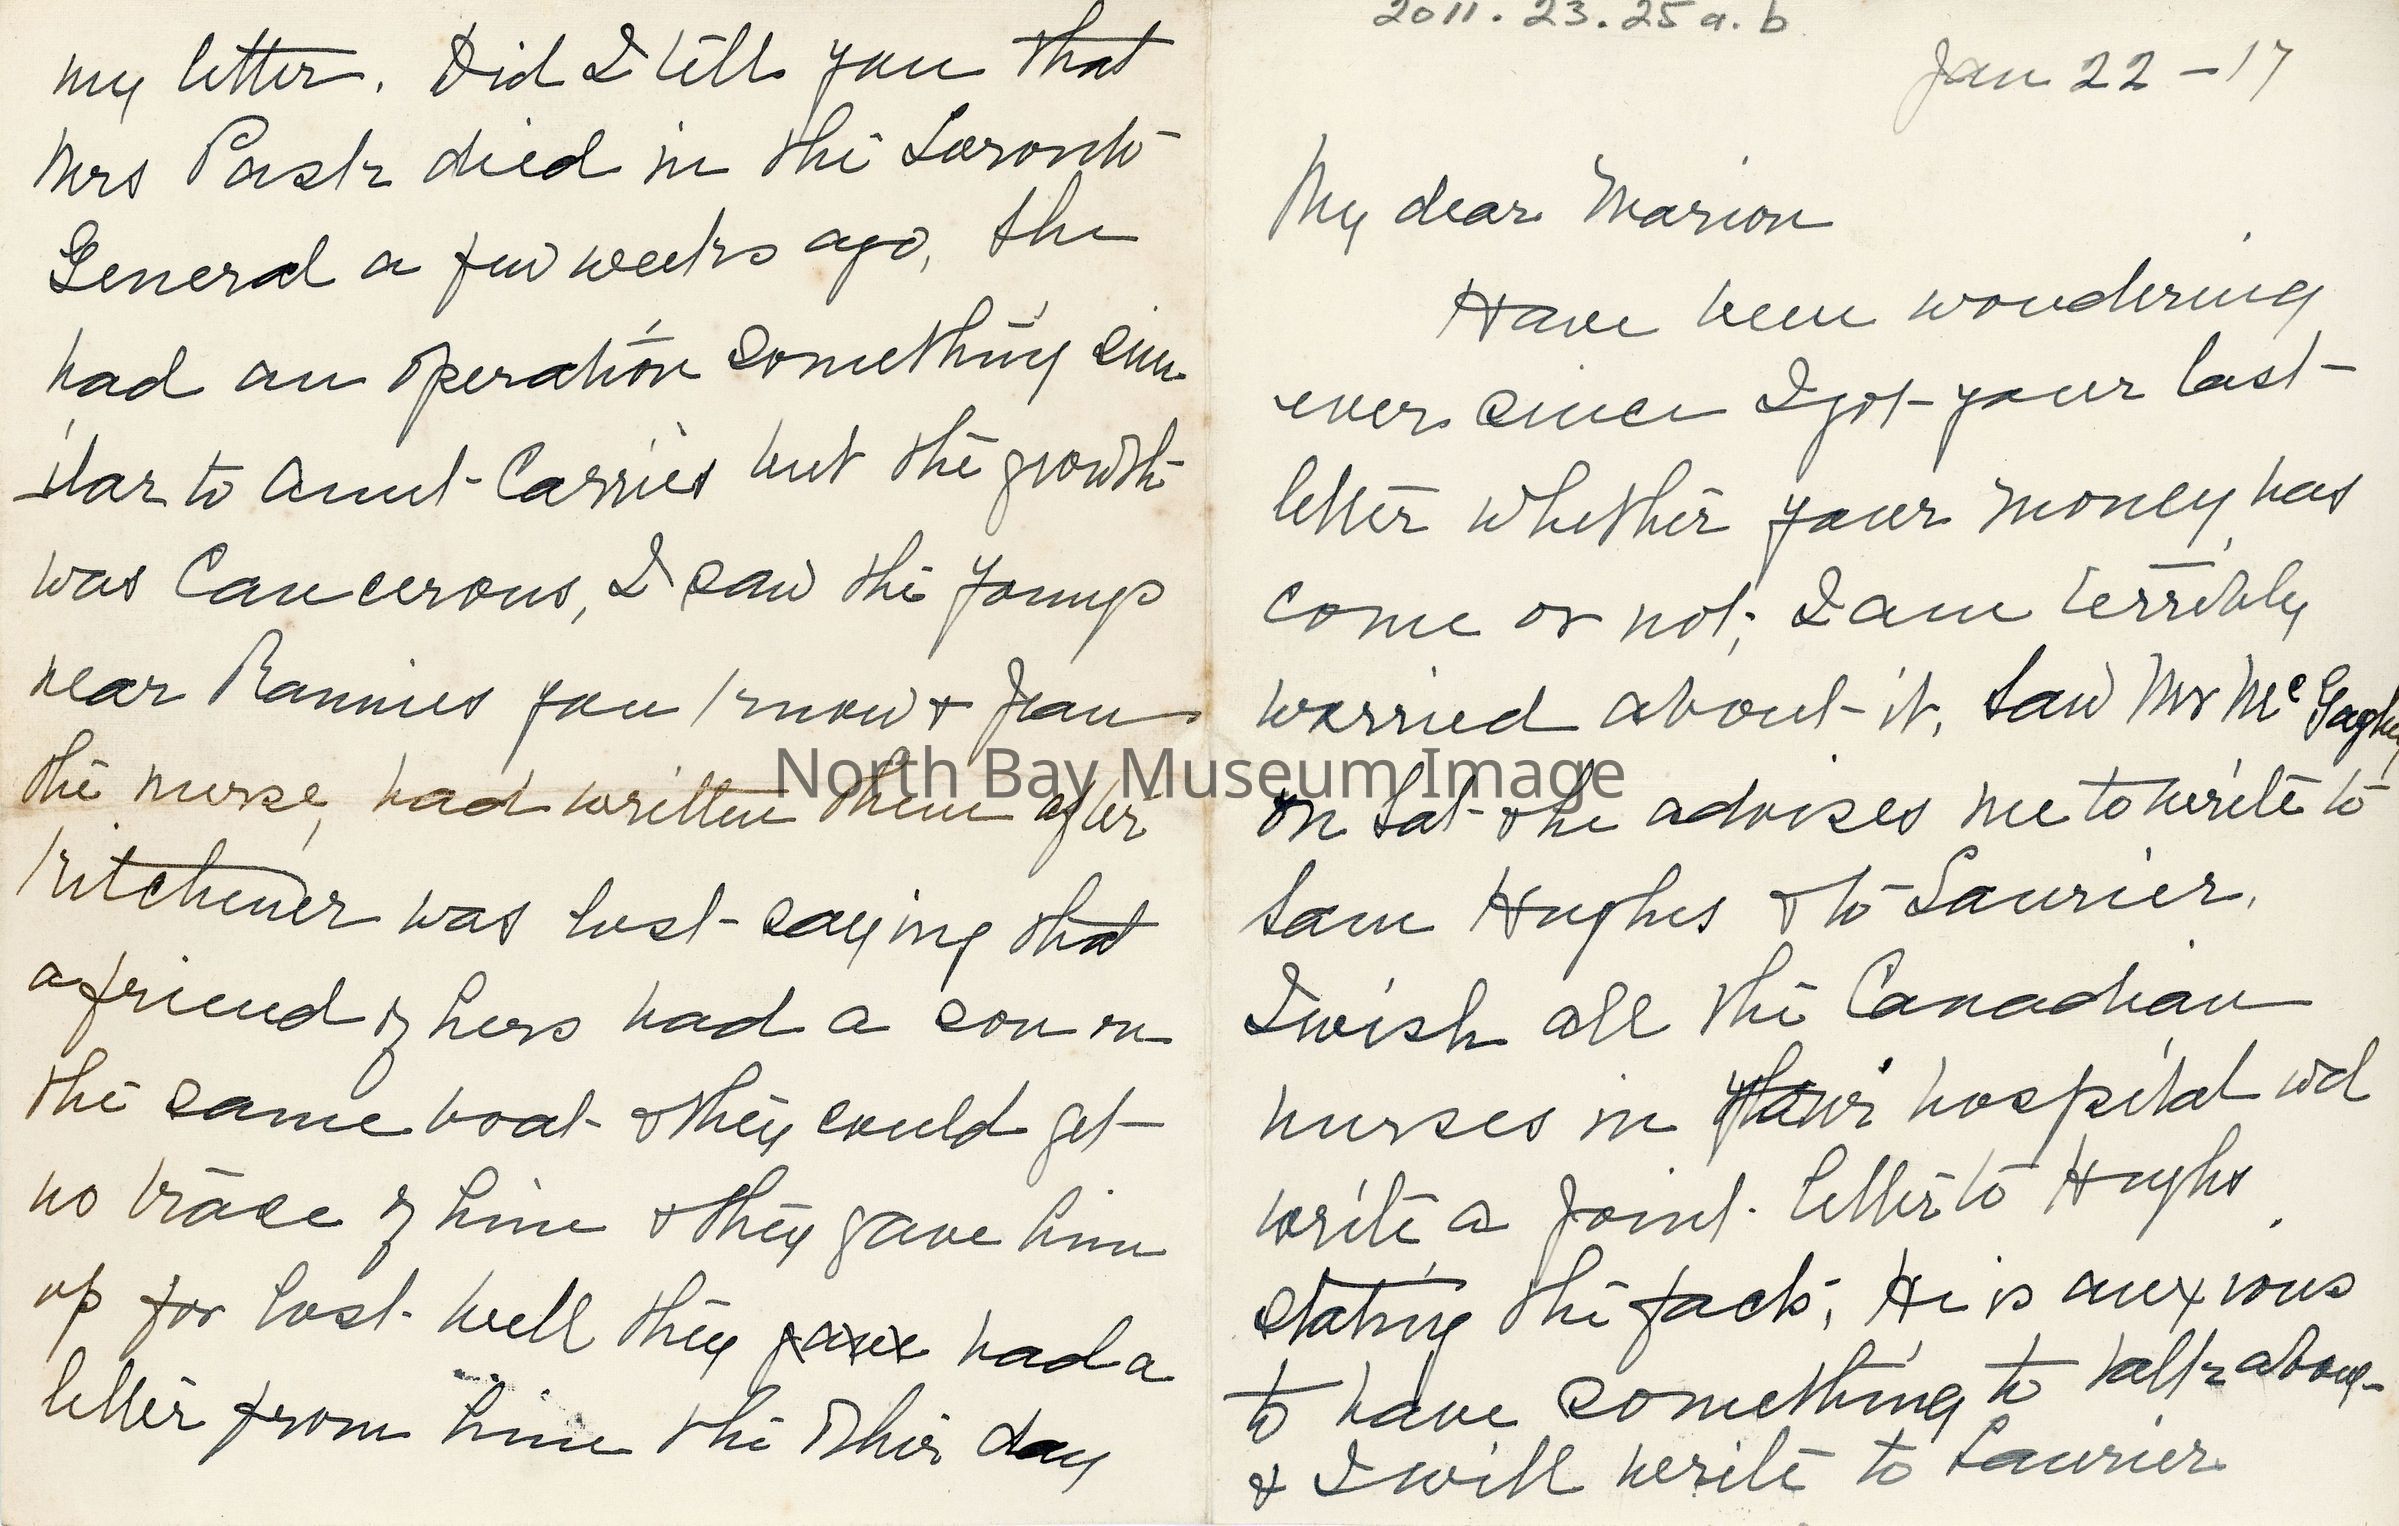 2011.23.25 a.b
Jan 22 - 17
My dear Marion
Have been wondering
ever since I got your last
letter whether your money has
come or not; I am terribly
worried about it. Saw Mr McGaghey
on Sat & he advises me to write to
Sam Hughes & to Laurier.
I wish all the Canadian
nurses in your hospital wd
write a joint letter to Hughs
stating the facts; He is anxious
to have something to talk about
& I will write to Laurier
my letter. Did I tell you that
Mrs died in the Toronto
General a few weeks ago, she
had an operation something sim
ilar to Aunt Carries but the growth
was Cancerous, I saw the Youngs
near Rannies you know & Jean
the nurse, had written them after
Kitchener was lost saying that
a friend of hers had a son on
the same boat & they could get
no trace of him & they gave him
up for lost well they gave had a
letter from him the other day
North Bay Museum Image